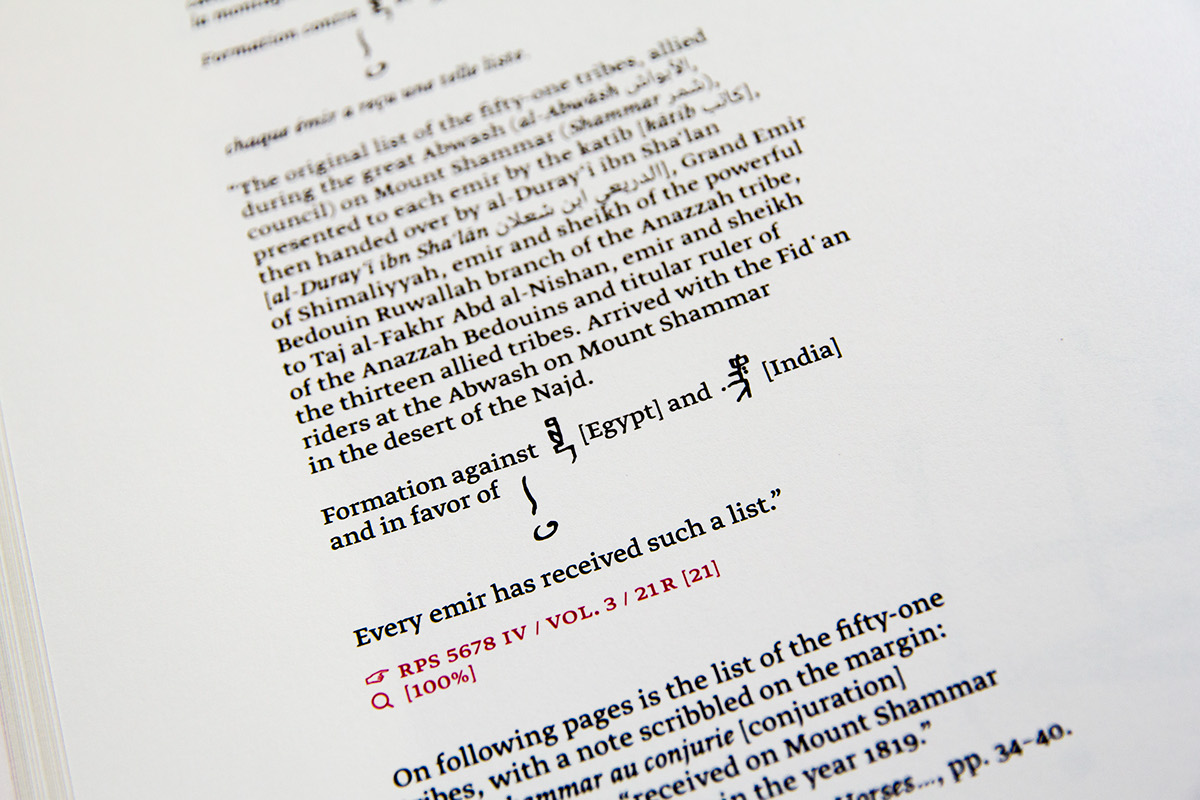 Formation contre
chaque émir a reçu une telle liste.
"The original list of the fifty-one tribes, allied
during the great Abwash (al-Abwāsh الأبواش,
council) on Mount Shammar (Shammar شمر),
presented to each emir by the katib [kātib كاتب],
then handed over by al-Duray‘i ibn Sha‘lan
[al-Duray‘ī ibn Sha‘lān الدريعي ابن شعلان], Grand Emir
of Shimaliyyah, emir and sheikh of the powerful
Bedouin Ruwallah branch of the Anazzah tribe,
to Taj al-Fakhr Abd al-Nishan, emir and sheikh
of the Anazzah Bedouins and titular ruler of
the thirteen allied tribes. Arrived with the Fid‘an
riders at the Abwash on Mount Shammar
in the desert of the Najd.
Formation against [Egypt] and [India]
and in favor of
Every emir has received such a list.”
☞ RPS 5678 IV / VOL. 3 / 21R [21]
[100%]
On following pages is the list of the fifty-one
tribes, with a note scribbled on the margin:
au conjurie [conjuration]
“received on Mount Shammar
in the year 1819.”
Horses..., pp. 34–40.